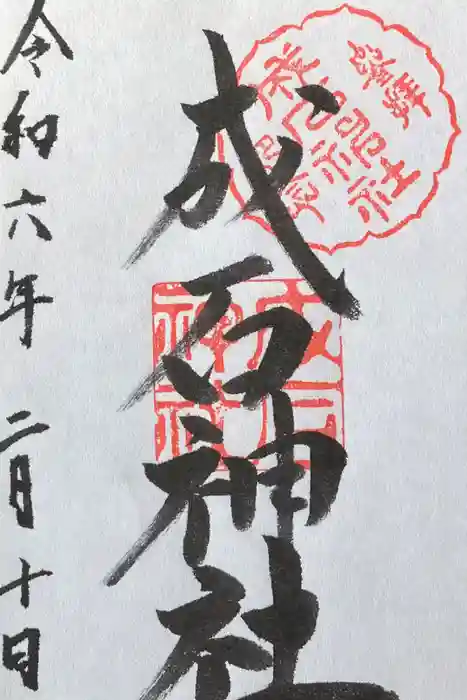 成石神社
令和六年 二月十日
成石
神社